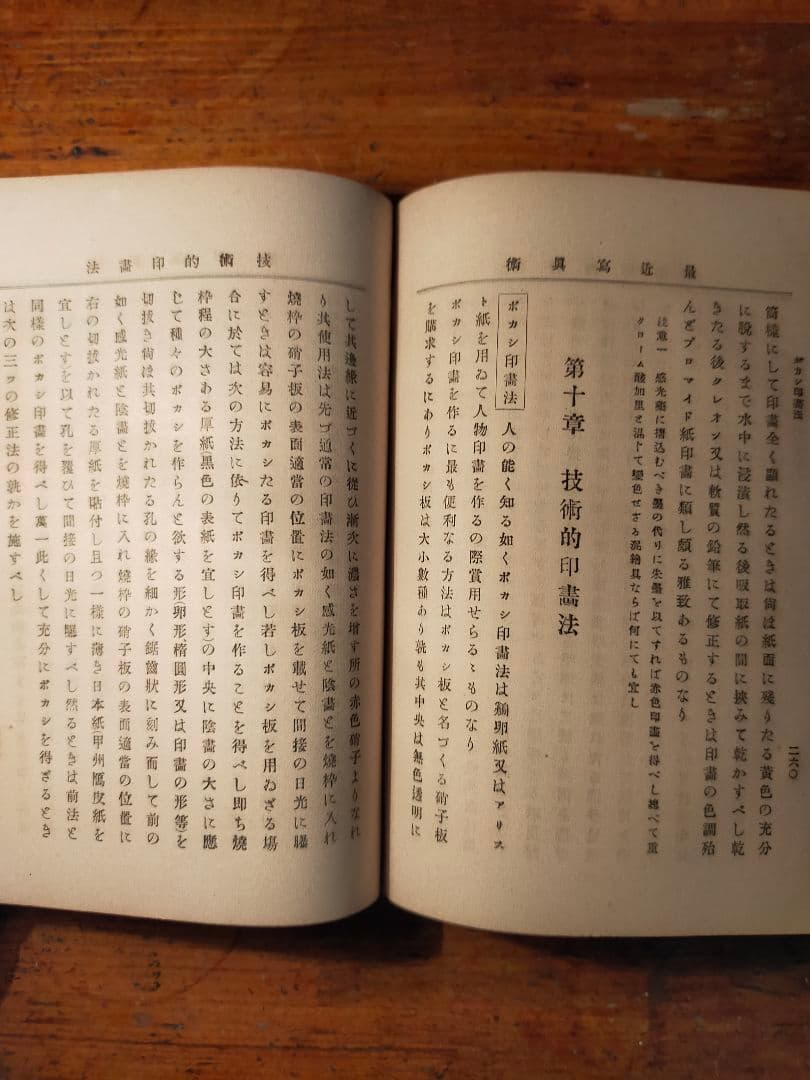 最近寫眞術
二六〇
筒樣にして印畫全く顯れたるときは尙ほ紙面に殘りたる黃色の充分
に脫するまで水中に浸漬し然る後吸取紙の間に挾みて乾かすべし乾
きたる後クレオン又は軟質の鉛筆にて修正するときは印畫の色調殆
んどブロマイド紙印畫に類し頗る雅致あるものなり
注意一 感光藥に摺込むべき墨の代りに朱墨を以てすれば赤色印畫を得べし總べて重
クローム酸加里と混じて變色せざる泥繪具ならば何にても宜し
第十章 技術的印畫法
ボカシ印畫法 人の能く知る如くボカシ印畫法は鷄卵紙又はアリス
ト紙を用ゐて人物印畫を作るの際賞用せらるゝものなり
ボカシ印畫を作るに最も便利なる方法はボカシ板と名づくる硝子板
を購求するにありボカシ板は大小數種あり孰も其中央は無色透明に
技術的印畫法
して其邊緣に近づくに從ひ漸次に濃さを增す所の赤色硝子よりなれ
り其使用法は先づ通常の印畫法の如く感光紙と陰畫とを燒枠に入れ
燒枠の硝子板の表面適當の位置にボカシ板を載せて間接の日光に曝
すときは容易にボカシたる印畫を得べし若しボカシ板を用ゐざる塲
合に於ては次の方法に依りてボカシ印畫を作ることを得べし卽ち燒
枠程の大さある厚紙黑色の表紙を宜しとす)の中央に陰畫の大さに應
じて種々のボカシを作らんと欲する形(卵形、楕圓形又は印畫の形等)を
切拔き尙ほ其切拔かれたる孔の緣を細かく鋸齒狀に刻み而して前の
如く感光紙と陰畫とを燒枠に入れ燒枠の硝子板の表面適當の位置に
右の切拔かれたる厚紙を貼付し且つ一樣に薄き日本紙(甲州雁皮紙を
宜しとす)を以て孔を覆ひて間接の日光に曝すべし然るときは前法と
同樣のボカシ印畫を得べし萬一此くして充分にボカシを得ざるとき
は次の三ツの修正法の孰かを施すべし